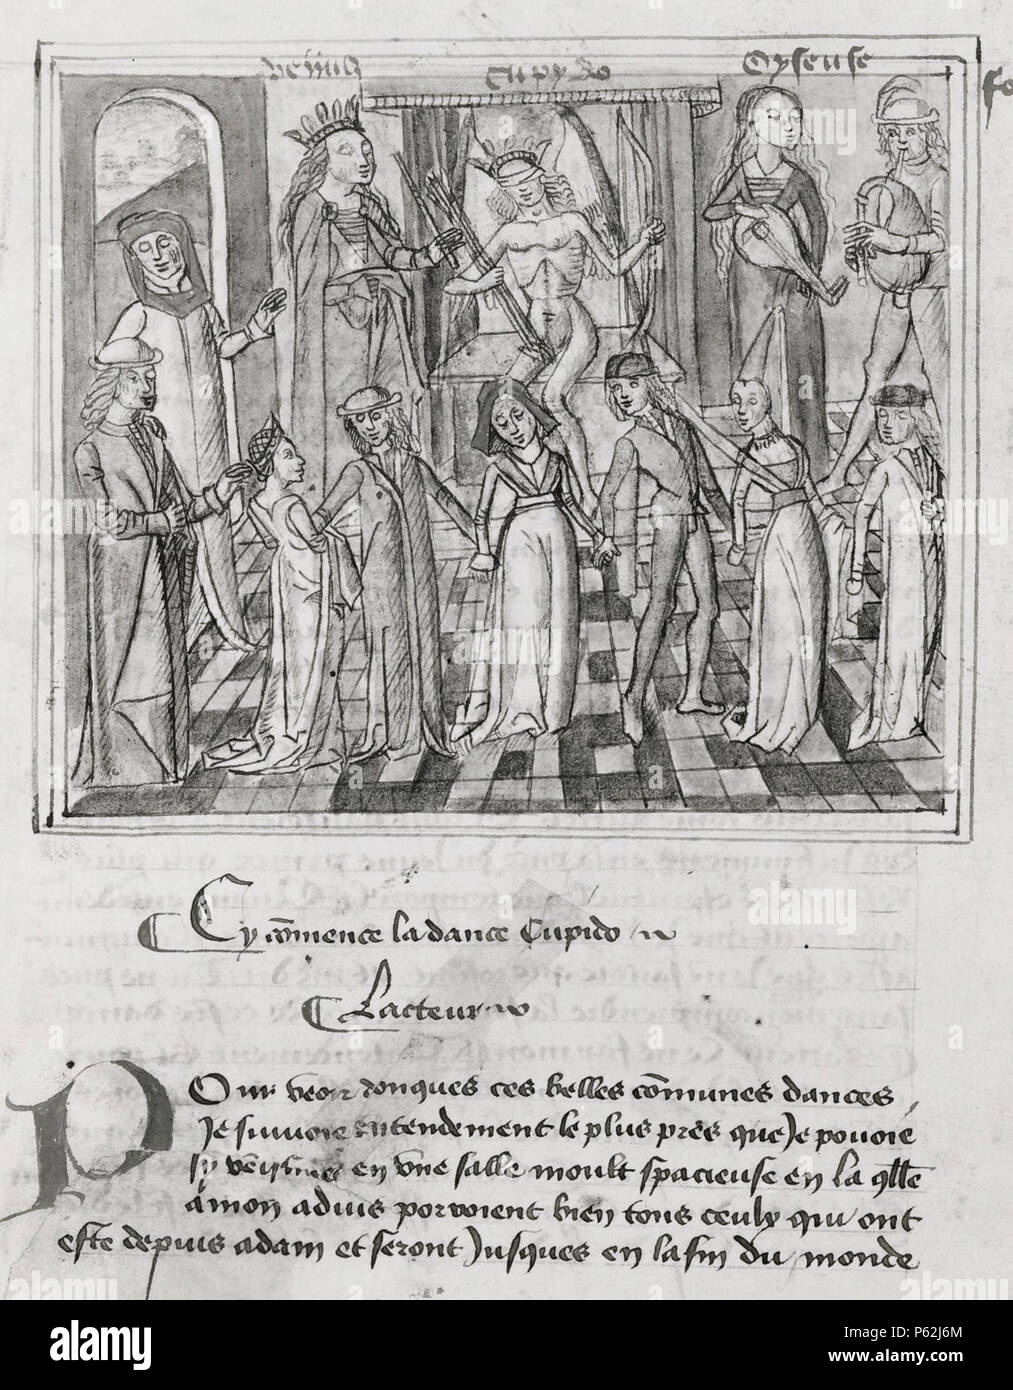 venus
cupydo
Oyseuse
fo
Cy cōmence la dance Cupido
Lacteur
Pour veoir donques ces belles cōmunes dances
Je suivoie entendement le plus pres que Je povoie
sy veismes en vne salle moult spacieuse en la qlle
a mon aduis porroient bien tous ceulx qui ont
este depuis adam et seront Jusques en la fin du monde
alamy
www.alamy.com
P62J6M